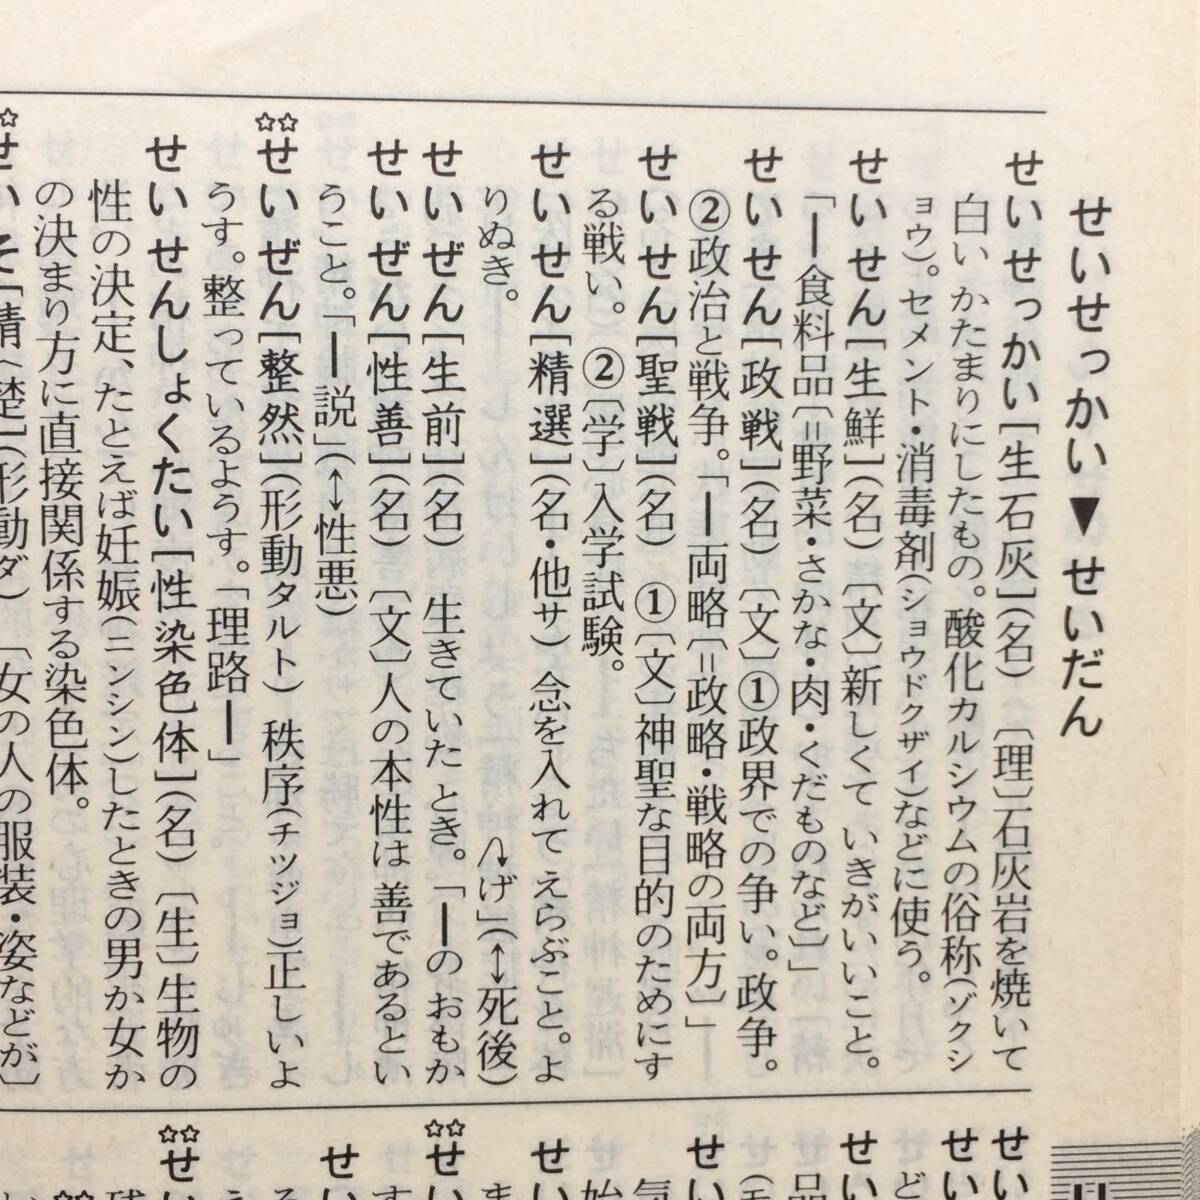 せいせっかい▼せいだん
せいせっかい[生石灰](名)〔理〕石灰岩を焼いて
白い かたまりにしたもの。酸化カルシウムの俗称(ゾクシ
ョウ)。セメント・消毒剤(ショウドクザイ)などに使う。
せいせん[生鮮](名)〔文〕新しくて いきがいいこと。
「―食料品〔=野菜・さかな・肉・くだものなど〕」
せいせん[政戦](名)〔文〕①政界での争い。政争。
②政治と戦争。「―両略〔=政略・戦略の両方〕」
せいせん[聖戦](名)①〔文〕神聖な目的のためにす
る戦い。②〔学〕入学試験。
せいせん[精選](名・他サ)念を入れてえらぶこと。よ
りぬき。
せいぜん[生前](名)生きていた とき。「―のおもか
げ」(↔死後)
せいぜん[性善](名)〔文〕人の本性は善であるとい
うこと。「―説」(↔性悪)
☆☆せいぜん[整然](形動タルト)秩序(チツジョ)正しいよ
うす。整っているようす。「理路―」
せいせんしょくたい[性染色体](名)〔生〕生物の
性の決定、たとえば妊娠(ニンシン)したときの男か女か
の決まり方に直接関係する染色体。
せいそ[清〈楚](形動ダ)〔女の人の服装・姿などが〕
せい
せい
ど
せい
品
せい
気
せい
ま
☆☆せ
す
せい
☆☆せ